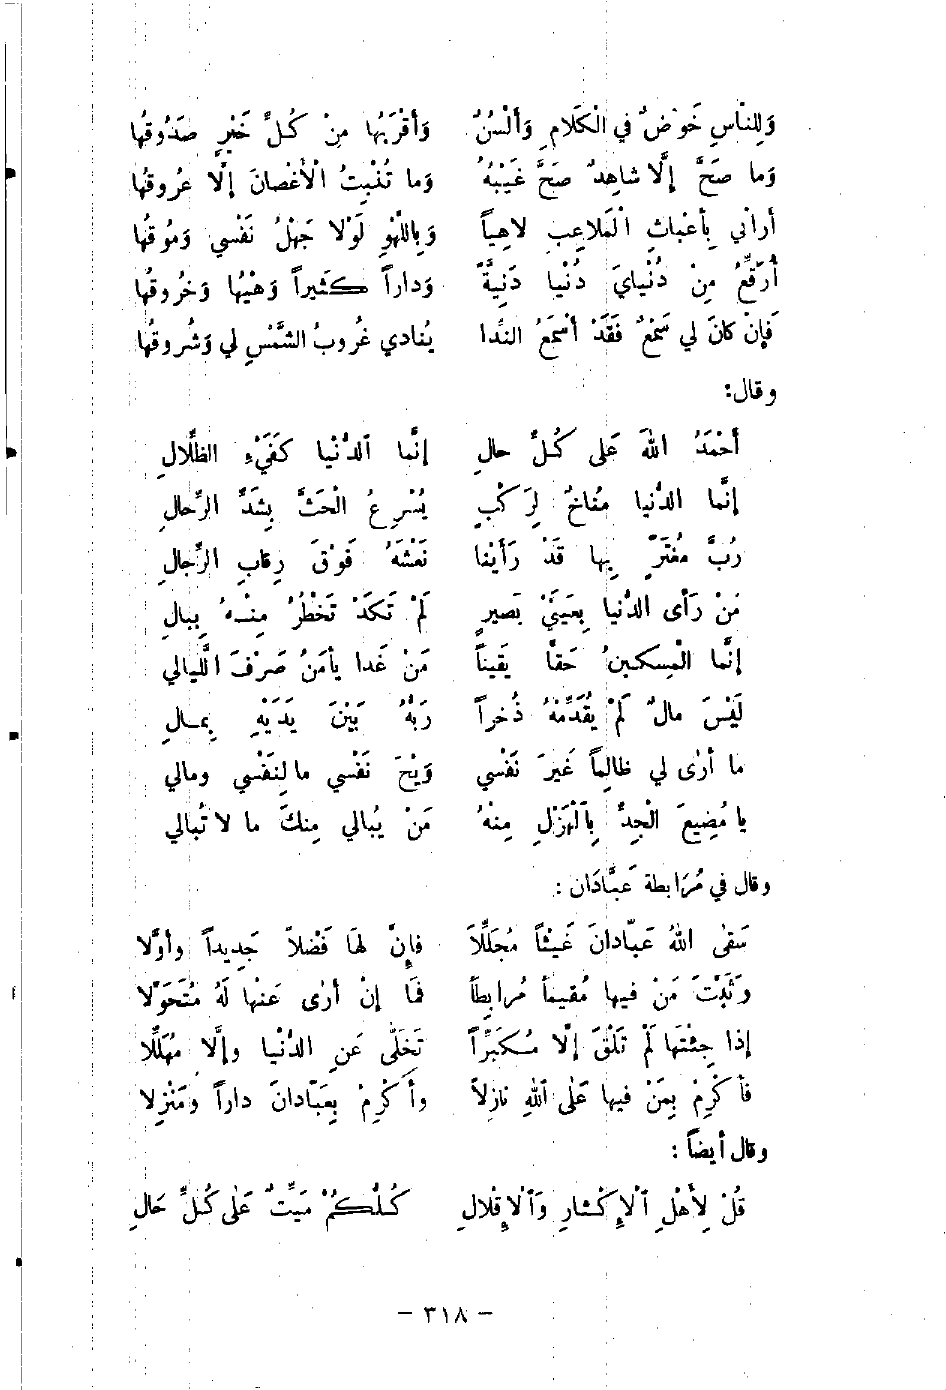 وَلِلنَّاسِ خَوْضٌ في الْكَلَامِ وَأَلْسُنٌ وَأَقْرَبُها مِنْ كُلِّ خَيْرٍ صَدُوقُها
وَما صَحَّ إِلَّا شاهِدٌ صَحَّ غَيْبُهُ وَما تُنْبِتُ الْأَغْصانَ إِلَّا عُروقُها
أَراني بِأَعْباثِ الْمَلاعِبِ لاهِياً وَبِاللَّهْوِ لَوْلا جَهْلُ نَفْسي وَمُوقُها
أُرَقِّعُ مِنْ دُنْيايَ دُنْيا دَنِيَّةً وَداراً كَثيراً وَهْيُها وَخُروقُها
فَإِنْ كانَ لي سَمْعٌ فَقَدْ أَسْمَعُ النِّدا يُنادي غُروبُ الشَّمْسِ لي وَشُروقُها
وقال:
أَحْمَدُ اللهَ عَلى كُلِّ حالِ إِنَّما الدُّنْيا كَفَيْءِ الظِّلالِ
إِنَّما الدُّنيا مُناخٌ لِرَكْبٍ يُسْرِعُ الْحَثَّ بِشَدِّ الرِّحالِ
رُبَّ مُغْتَرٍّ بِها قَدْ رَأَيْنا نَعْشَهُ فَوْقَ رِقابِ الرِّجالِ
مَنْ رَأى الدُّنيا بِعَيْنَيْ بَصيرٍ لَمْ تَكَدْ تَخْطُرُ مِنْهُ بِبالِ
إِنَّما الْمِسكينُ حَقّاً يَقيناً مَنْ غَدا يأمَنُ صَرْفَ اللَّيالي
لَيْسَ مالٌ لَمْ يُقَدِّمْهُ ذُخراً رَبُّهُ بَيْنَ يَدَيْهِ بِمالِ
ما أَرٰى لي ظالِماً غَيرَ نَفْسي وَيْحَ نَفْسي ما لِنَفْسي ومالي
يا مُضِيعَ الْجِدِّ بِالْهَزْلِ مِنْهُ مَنْ يُبالي مِنكَ ما لا تُبالي
وقال في مُرَابطة عَبَّادَان :
سَقىٰ اللهُ عَبّادانَ غَيْثاً مُجَلِّلاً فإِنَّ لهَا فَضْلاً جَديداً وأَوَّلا
وَثَبَّتَ مَنْ فيها مُقيماً مُرابِطاً فَمَا إِنْ أَرىٰ عَنْها لَهُ مُتَحَوَّلا
إذا جِئْتَها لَمْ تَلْقَ إِلَّا مُكَبِّراً تَخَلّٰى عَنِ الدُّنْيا وإِلَّا مُهَلِّلا
فأَكْرِمْ بِمَنْ فيها عَلٰى اللهِ نازِلاً وأَكْرِمْ بِعَبّادانَ داراً وَمَنْزِلا
وقال أيضاً :
قُلْ لِأَهْلِ الْإِكْثارِ وَالْإِقْلالِ كُلُّكُمْ مَيِّتٌ عَلٰى كُلِّ حَالِ
– ٣١٨ –